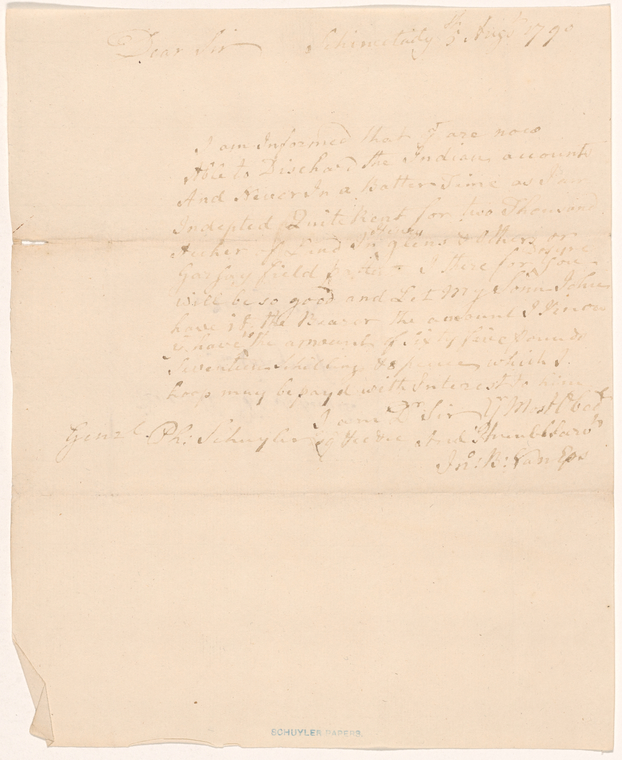 Dear Sir Schinectady 5th Augt 1790
I am Informed that Yr are now
Able to Discharge the Indian account
And Never In a Better Time as I am
Indepted Quit Rent for two Thousand
and others
will be so good and Let My Sonn John
have it the Bearer the amount I know
to have the amount of sixty five Pounds
Seventeen Shilling & pence which I
hoop may be payd with Interest to him
I am Dr Sir Yr Most Obedt
Genrl Ph: Schuyler Esqr And Humbl Sarvt
Jno: B: Van Eps
SCHUYLER PAPERS